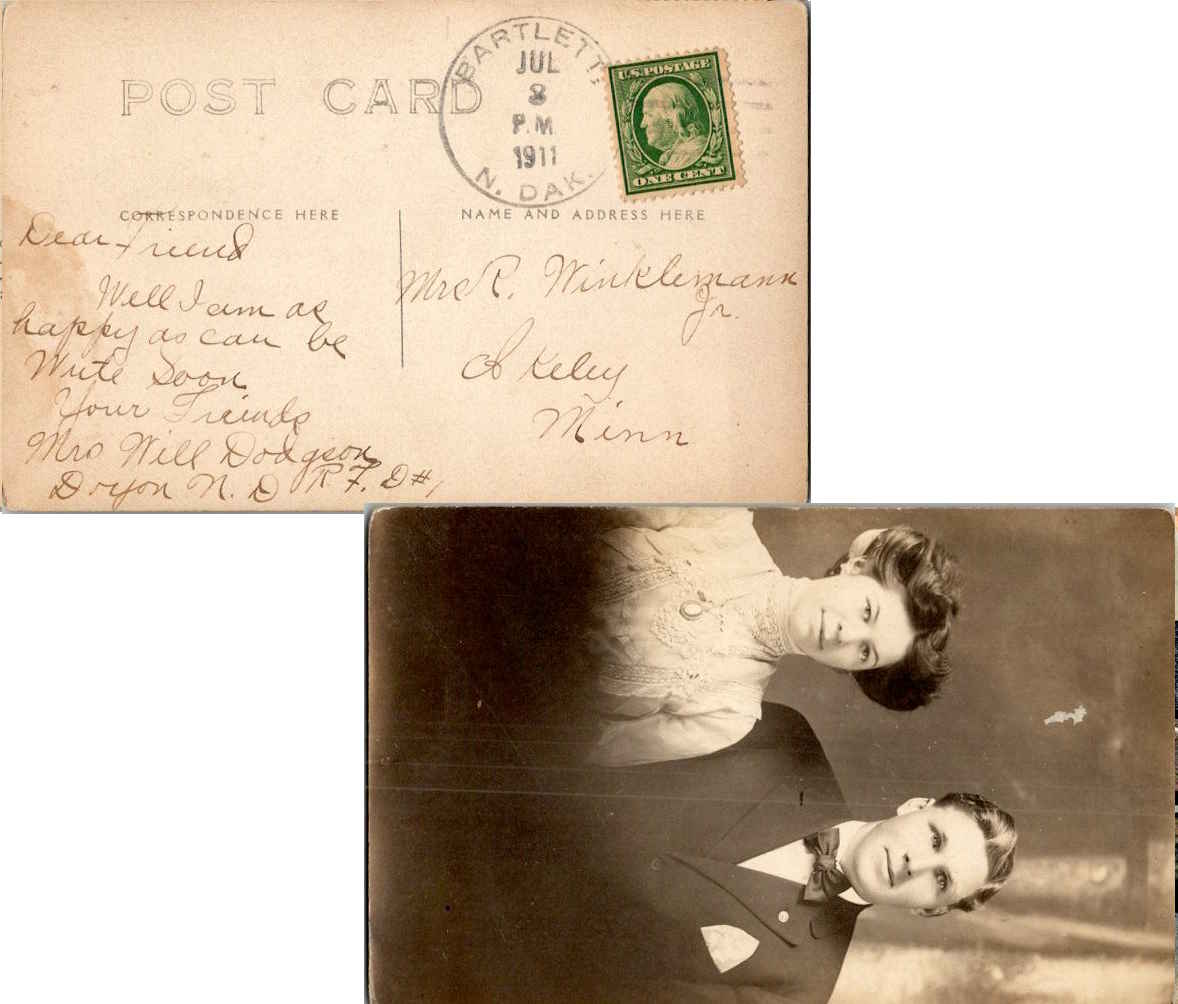 POST CARD
BARTLETT
JUL
8
P.M
1911
N. DAK.
U.S. POSTAGE
ONE CENT
CORRESPONDENCE HERE
NAME AND ADDRESS HERE
Dear Friend
Well I am as
happy as can be
Write Soon
Your Friends
Mrs Will Dodgson
Doyon N. D R F. D #1
Mrs R. Winklemann
Jr.
Akeley
Minn